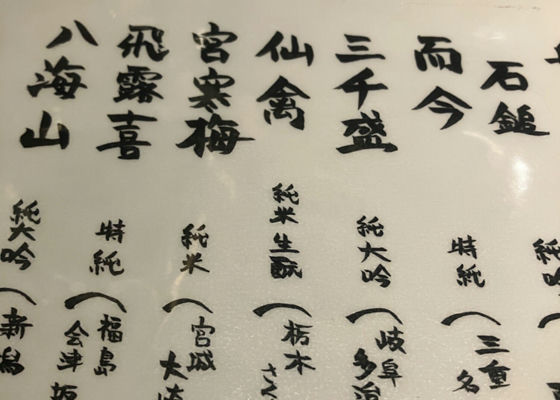 石鎚
純吟
而今
特純
(三重
名
三千盛
純大吟
(岐阜
多治
仙禽
純米生酛
(栃木
さく
宮寒梅
純米
(宮城
大崎
飛露喜
特純
(福島
会津
八海山
純大吟
(新潟